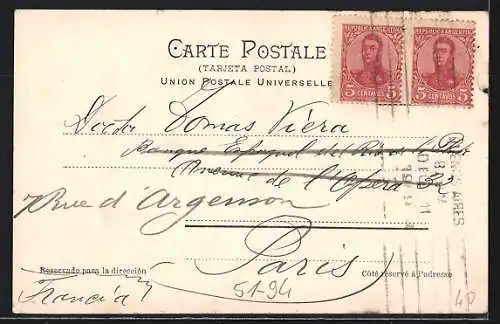 CARTE POSTALE
(TARJETA POSTAL)
UNION POSTALE UNIVERSELLE
REPUBLICA ARGENTINA
5 CENTAVOS 5
REPUBLICA ARGENTINA
5 CENTAVOS 5
Tomas Viera
Banque Espagnol del Rio de la Plata
Avenue de l'Opera
7 Rue d'Argenson
Paris
BUENOS AIRES
Reservado para la dirección
Côté réservé à l'adresse
Francia
51-94
40